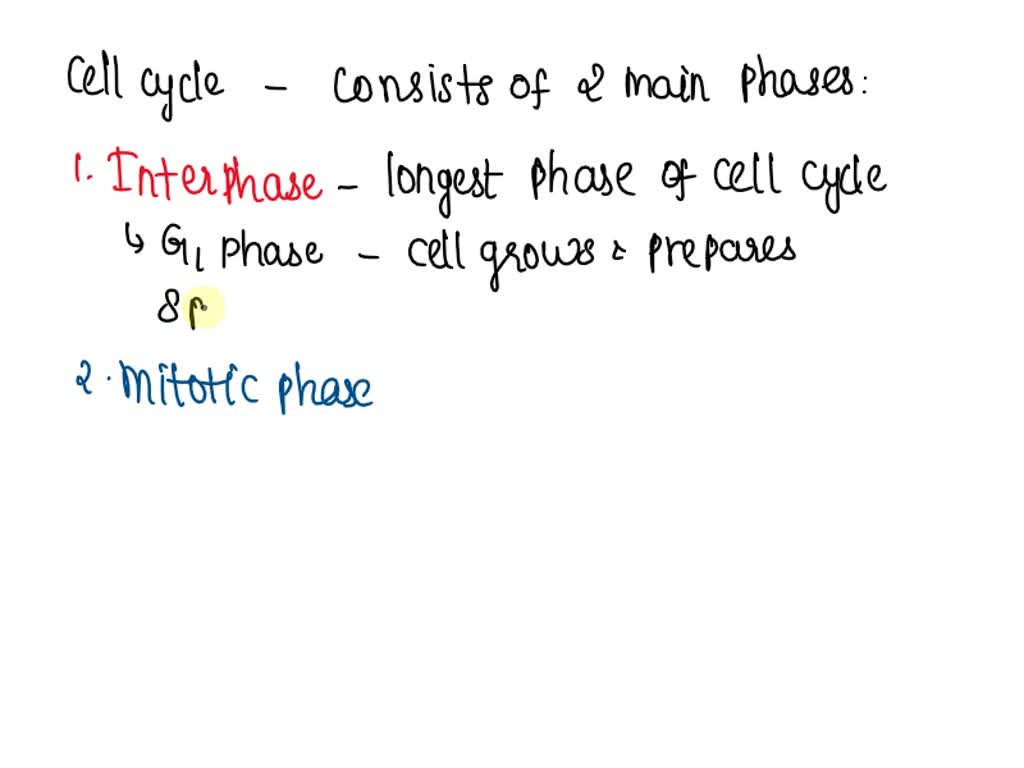 Cell cycle - consists of 2 main phases:
1. Interphase - longest phase of cell cycle
↳ G1 phase - cell grows & prepares
S p
2. Mitotic phase